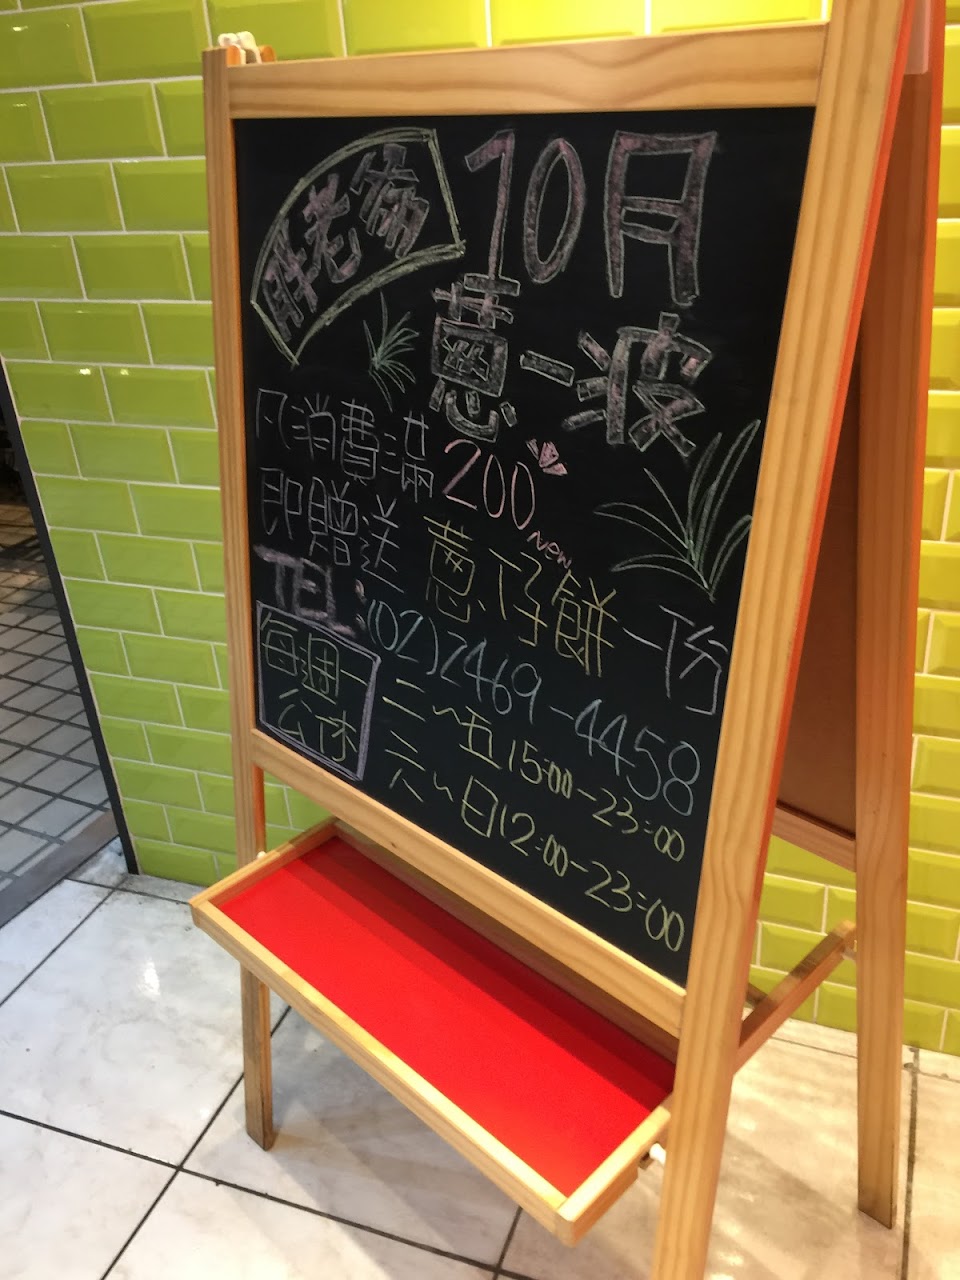 胖老爺
10月
蔥一波
凡消費滿200
即贈送蔥仔餅一份
NEW
TEL:(02)2469-4458
每週一公休
二~五15:00-23:00
六~日12:00-23:00